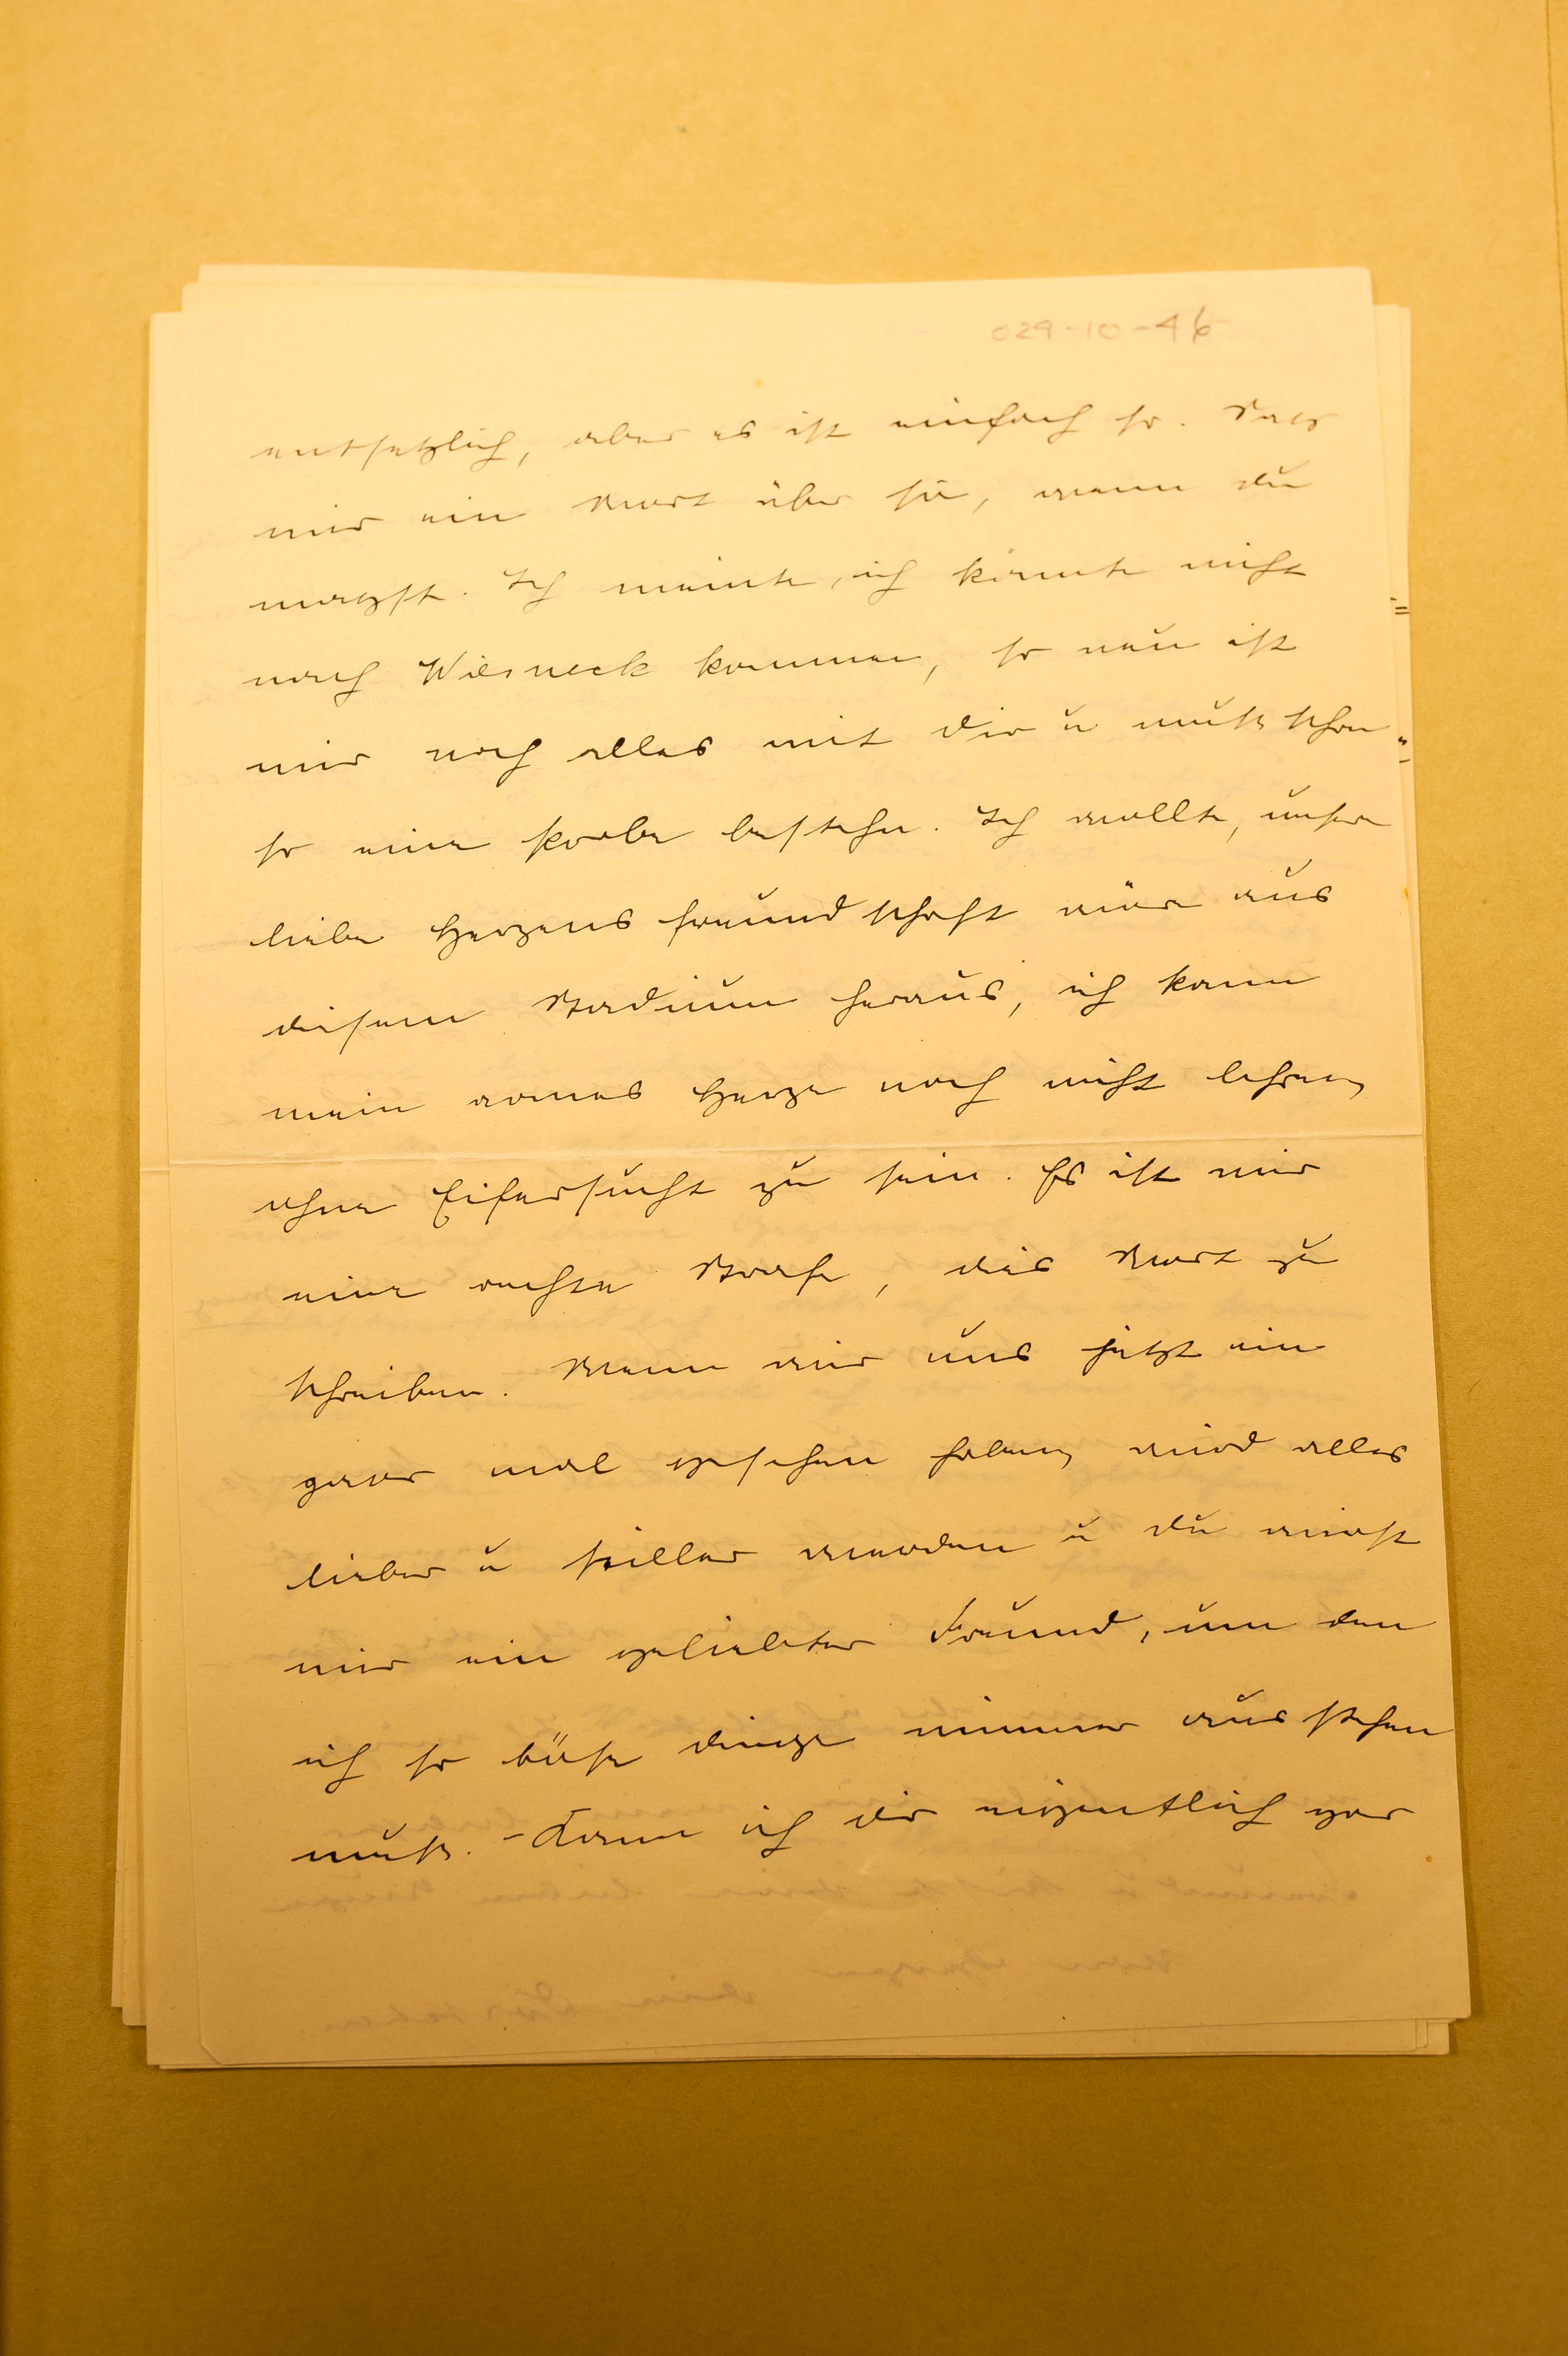 029-10-46
entsetzlich, aber es ist einfach so. Sag
mir ein Wort über sie, wenn du
magst. Ich meinte, ich könnte nicht
nach Wiesneck kommen, so neu ist
mir noch alles mit dir u muß schon
so eine Probe bestehn. Ich wollte, unsre
liebe Herzensfreundschaft wär aus
diesem Stadium heraus, ich kann
mein armes Herze noch nicht lehren,
ohne Eifersucht zu sein. Es ist mir
eine rechte Strafe, dies Wort zu
schreiben. Wenn wir uns jetzt ein
paar mal gesehen haben, wird alles
lieber u stiller werden u du wirst
mir ein geliebter Freund, um den
ich so böse Dinge nimmer ausstehen
muß. - Kann ich dir eigentlich gar